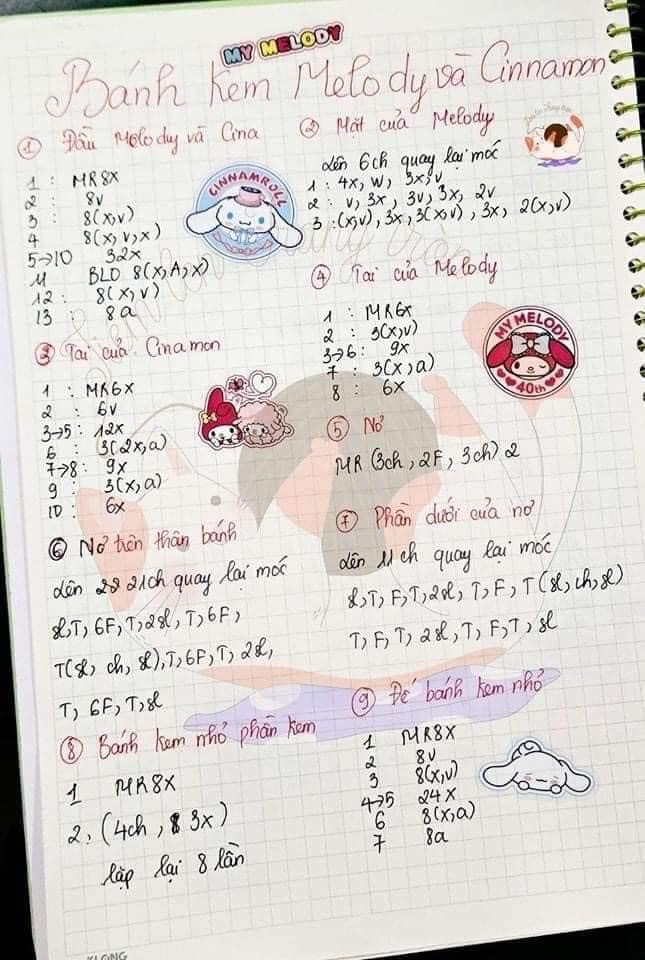 MY MELODY
Bánh kem Melody và Cinnamon
① Đầu Melody và Cina
1 : MR8X
2 : 8v
3 : 8(x,v)
4 8(x,v,x)
5→10 32x
11 BLO 8(x,A,x)
12 : 8(x,v)
13 : 8a
CINNAMROLL
② Mặt của Melody
lên 6ch quay lại móc
1 : 4x, W, 3x, v
2 : v, 3x, 3v, 3x, 2v
3 : (x,v), 3x, 3(x,v), 3x, 2(x,v)
③ Tai của Cinamon
1 : MR6x
2 : 6v
3→5 : 12x
6 : 3(2x,a)
7→8 : 9x
9 : 3(x,a)
10 : 6x
④ Tai của Melody
1 : MR6x
2 : 3(x,v)
3→6 : 9x
7 : 3(x,a)
8 : 6x
MY MELODY
40th
⑤ Nơ
MR (3ch, 2F, 3ch) 2
⑥ Nơ trên thân bánh
lên 21ch quay lại móc
sl,T, 6F, T, 2sl, T, 6F,
T(sl, ch, sl), T, 6F, T, 2sl,
T, 6F, T, sl
⑦ Phần dưới của nơ
lên 11ch quay lại móc
sl,T, F,T, 2sl, T, F, T (sl, ch, sl)
T, F, T, 2sl, T, F, T, sl
⑧ Bánh kem nhỏ phần kem
1 MR8X
2, (4ch, 3x)
lặp lại 8 lần
⑨ Đế bánh kem nhỏ
1 MR8X
2 8v
3 8(x,v)
4→5 24x
6 8(x,a)
7 8a
KLONG